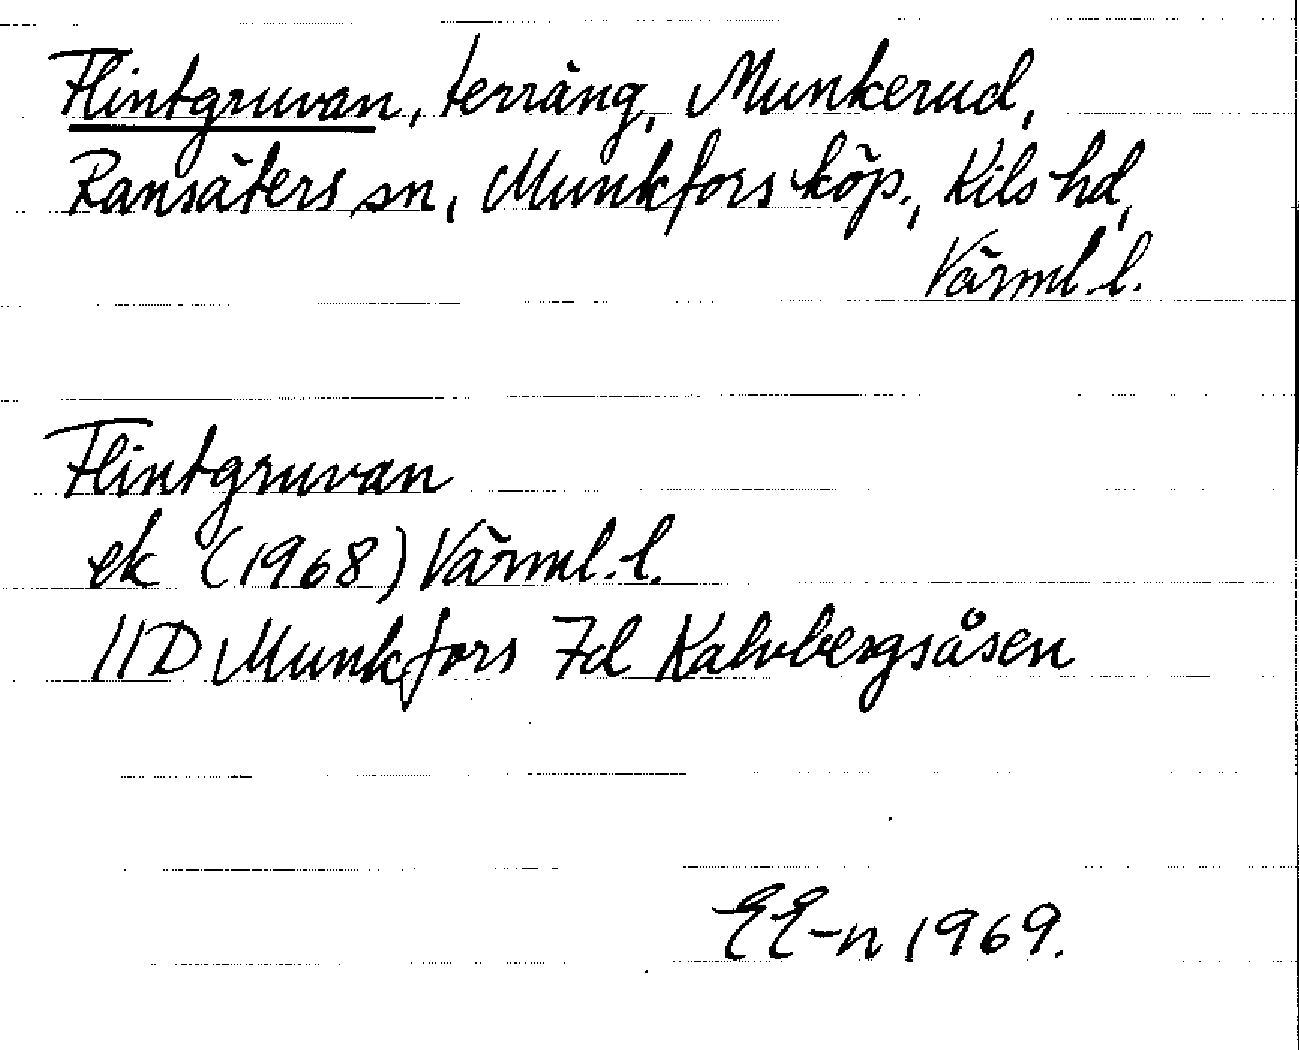 Flintgruvan, terräng, Munkerud,
Ransäters sn, Munkfors köp., Kils hd,
Värml. l.
Flintgruvan
ek (1968) Värml. l.
11D Munkfors 7d Kalvbergsåsen
EE-n 1969.